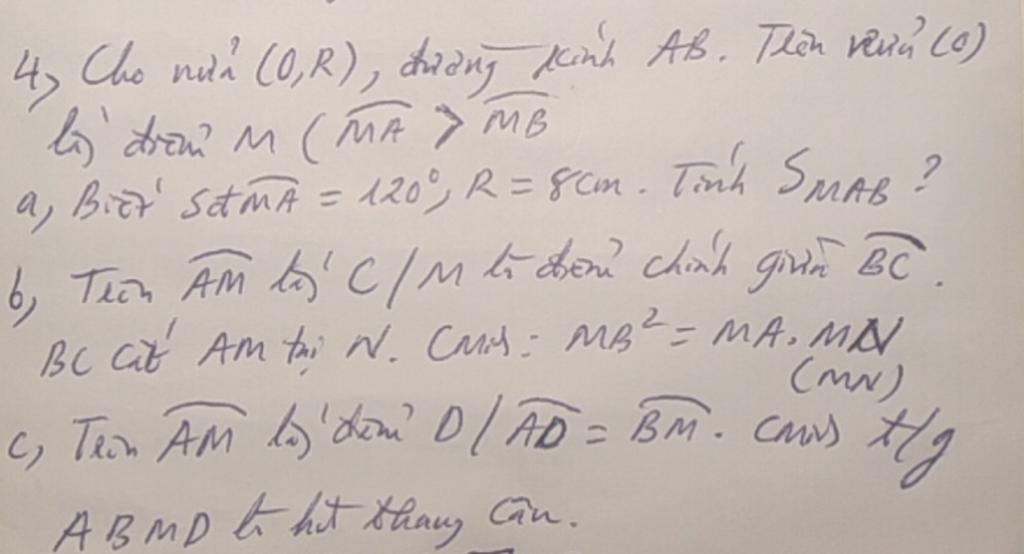 4, Cho nửa (O,R), đường kính AB. Trên nửa (O)
lấy điểm M (MA > MB
a, Biết sđ MA = 120°, R = 8cm. Tính S MAB ?
b, Trên AM lấy C / M là điểm chính giữa BC.
BC cắt AM tại N. Cminh: MB² = MA. MN
(MN)
c, Trên AM lấy điểm D / AD = BM. Cminh t/g
ABMD là hct thang cân.